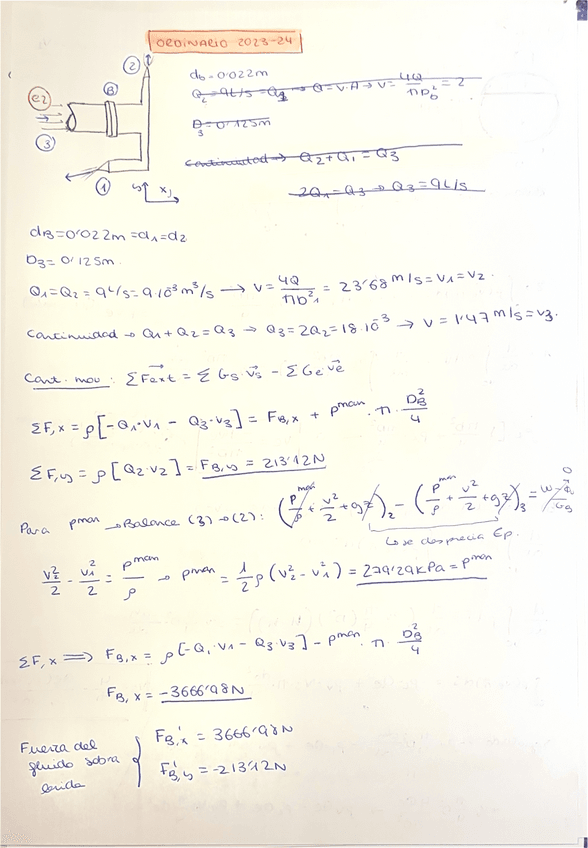 ORDINARIO 2023-24
2
B
e2
3
1
y
x
db=0'022m
Q2=9L/s=Q1 → Q=V·A → V= 4Q/πDb² = 2
D3=0'125m
Continuidad → Q2+Q1=Q3
2Q1=Q3 → Q3=9L/s
dB=0'022m=d1=d2
D3=0'125m.
Q1=Q2=9L/s=9·10⁻³m³/s → V= 4Q/πD²1 = 23'68m/s=V1=V2.
Continuidad → Q1+Q2=Q3 → Q3=2Q2=18·10⁻³ → V=1'47m/s=V3.
Cant. mov: ΣFext = ΣGs·vs - ΣGe·ve
ΣF,x = ρ[-Q1·V1 - Q3·V3] = FB,x + pman·π·DB²/4
ΣF,y = ρ[Q2·V2] = FB,y = 213'12N
Para pman → Balance (3)→(2): (pman/ρ + v²/2 + gz)2 - (pman/ρ + v²/2 + gz)3 = w-Φv/Gs 0
Se desprecia Ep.
v2²/2 - v1²/2 = pman/ρ → pman = 1/2 ρ(v2²-v1²) = 279'29kPa=pman
ΣF,x ⟹ FB,x = ρ[-Q1·V1 - Q3·V3] - pman·π·DB²/4
FB,x = -3666'98N
Fuerza del fluido sobre brida { FB,x' = 3666'98N
FB,y' = -213'12N